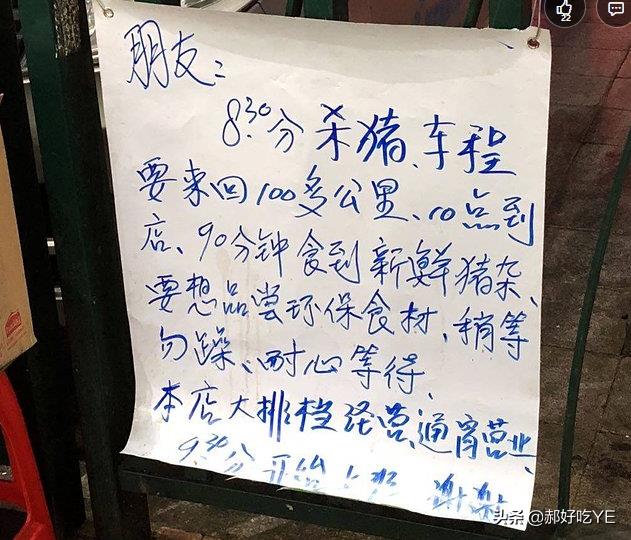 朋友：
8:30分杀猪、车程
要来回100多公里、10点到
店、90分钟食到新鲜猪杂、
要想品尝环保食材、稍等
勿躁、耐心等待、
本店大排档经营、通宵营业、
9:30分开始上班 谢谢
头条 @郝好吃YE
22